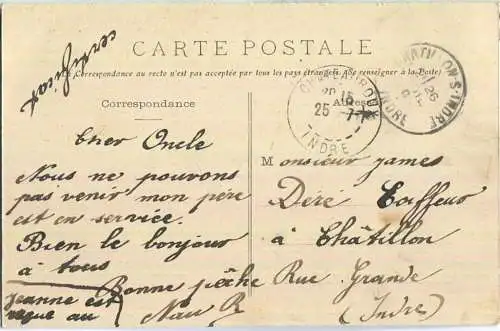 CARTE POSTALE
(La Correspondance au recto n'est pas acceptée par tous les pays étrangers. Se renseigner à la Poste)
Correspondance
Adresse
CHATEAUROUX
25 - 7
INDRE
CHATILLON-S-INDRE
26
INDRE
Cher Oncle
Nous ne pouvons
pas venir mon père
est en service.
Bien le bonjour
à tous
Bonne pêche
Jeanne est
Monsieur James
Déré Coiffeur
à Châtillon
Rue Grande
(Indre)